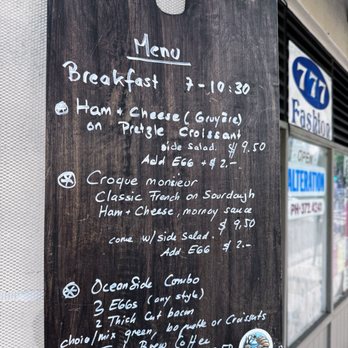 Menu
Breakfast 7-10:30
Ham + Cheese (Gruyère)
on Pretzle Croissant
side Salad. $9.50
Add EGG + $2.-
Croque monsieur
Classic French on Sourdough
Ham + Cheese, mornay sauce
$9,50
come w/ side Salad.
Add EGG $2.-
OceanSide Combo
2 EGGs (any style)
2 Thick Cut bacon
choice/mix green, baguette or Croissants
Brew Coffee
777
Fashion
OPEN
ALTERATION
PH:372.4241